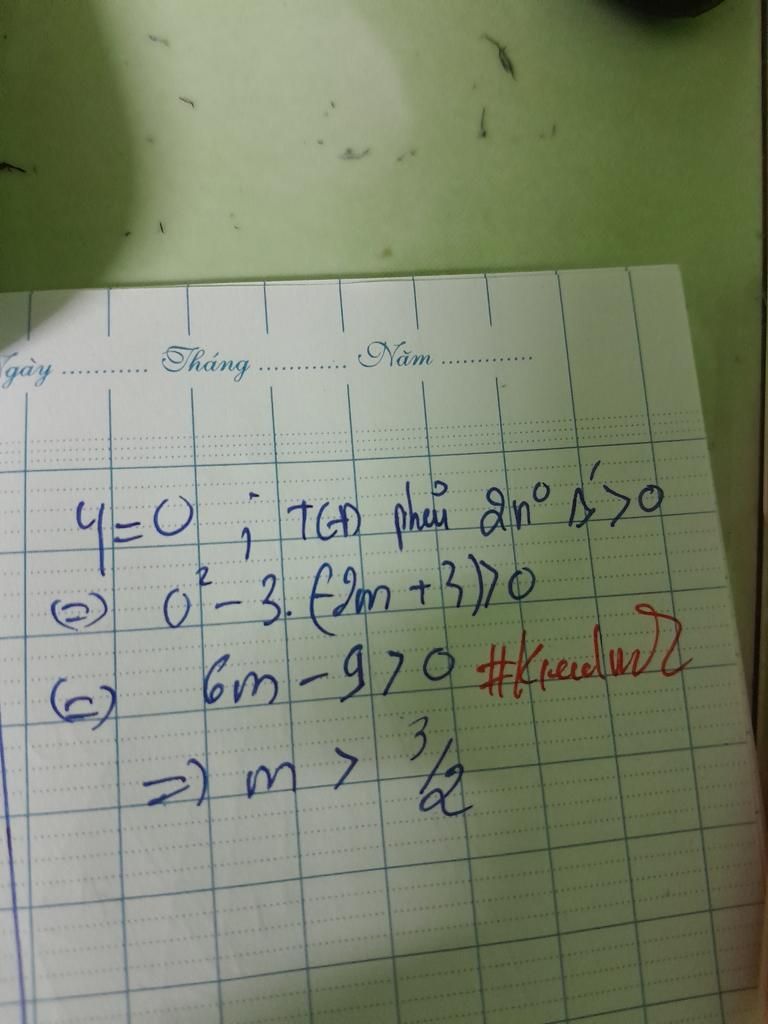 Ngày ........... Tháng ........... Năm ............
y = 0 ; TGĐ phải 2n⁰ Δ' > 0
(=) 0² - 3.(-2m + 3) > 0
(=) 6m - 9 > 0
=) m > 3/2